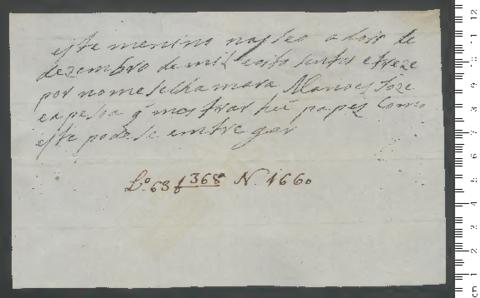 este menino nasseo a dois de
dezembro de mil e oito sentos e treze
por nome se chamara Manoel Joze
e a pesoa q mostrar hũ papel como
este pode se emtregar
Lo. 68 f 368 N. 1660